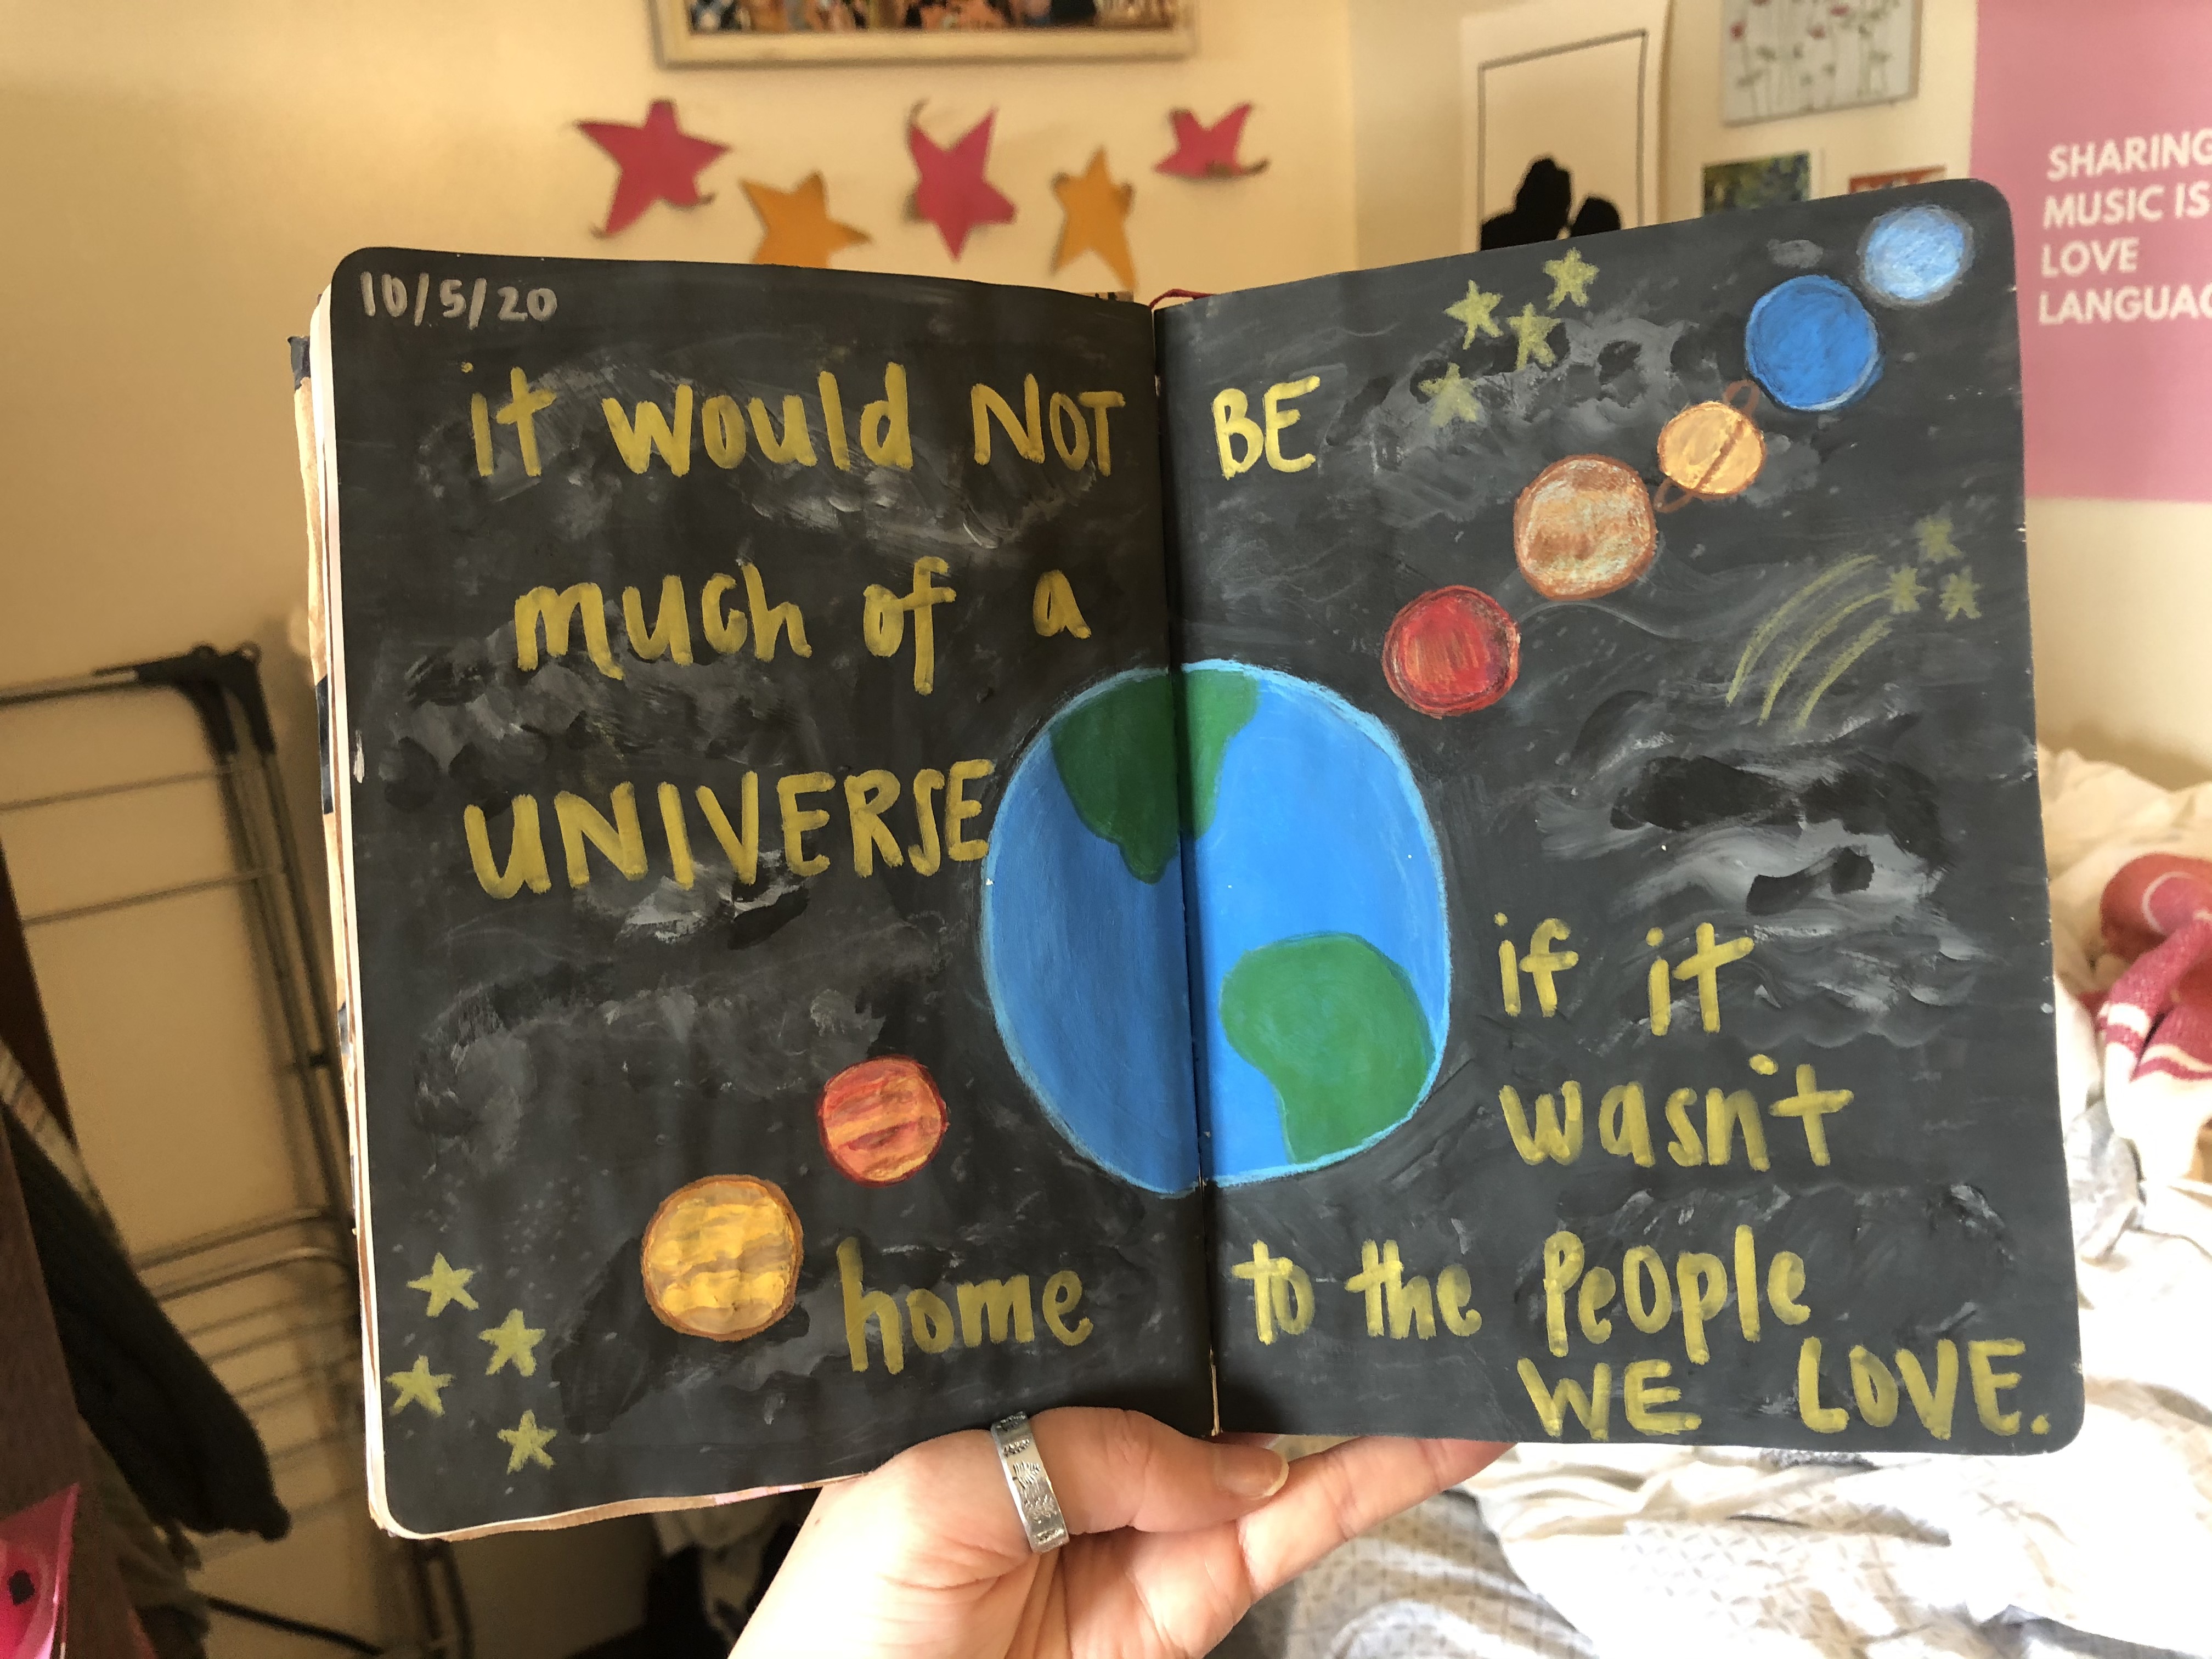 10/5/20
it would NOT BE
much of a
UNIVERSE
if it
wasn't
home to the People
WE LOVE.
SHARING
MUSIC IS
LOVE